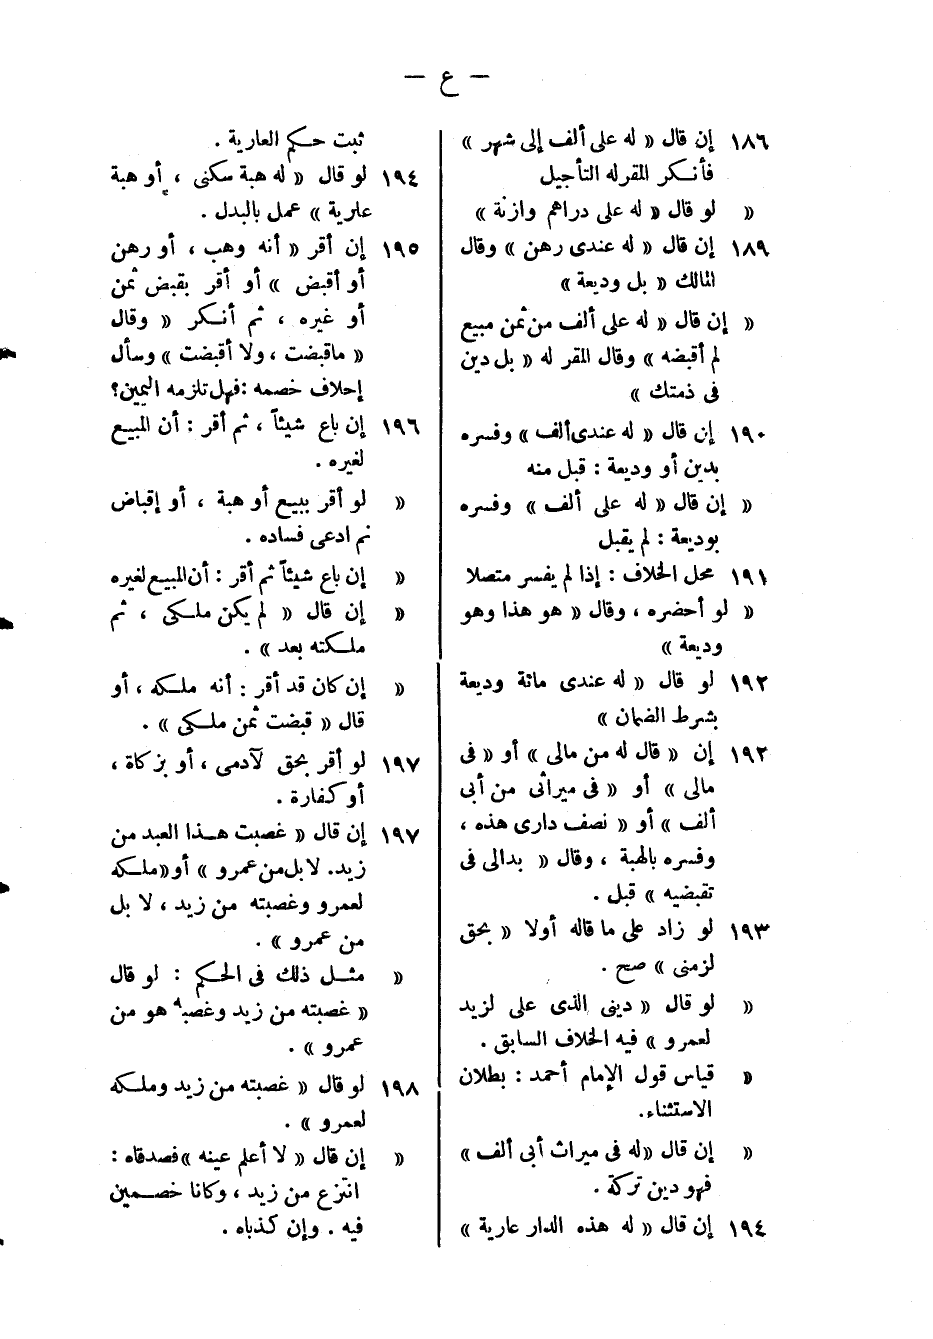 — ع —
١٨٦ إن قال « له على ألف إلى شهر »
فأنكر المقرله التأجيل
« لو قال « له على دراهم وازنة »
١٨٩ إن قال « له عندى رهن » وقال
المالك « بل وديعة »
« إن قال « له على ألف من ثمن مبيع
لم أقبضه » وقال المقر له « بل دين
فى ذمتك »
١٩٠ إن قال « له عندى ألف » وفسره
بدين أو وديعة : قبل منه
« إن قال « له على ألف » وفسره
بوديعة : لم يقبل
١٩١ محل الخلاف : إذا لم يفسر متصلا
« لو أحضره ، وقال « هو هذا وهو
وديعة »
١٩٢ لو قال « له عندى مائة وديعة
بشرط الضمان »
١٩٢ إن « قال له من مالى » أو « فى
مالى » أو « فى ميراثى من أبى
ألف » أو « نصف دارى هذه ،
وفسره بالهبة ، وقال « بدالى فى
تقبضيه » قبل .
١٩٣ لو زاد على ما قاله أولا « بحق
لزمنى » صح .
« لو قال « دينى الذى على لزيد
لعمرو » فيه الخلاف السابق .
« قياس قول الإمام أحمد : بطلان
الاستثناء.
« إن قال «له فى ميراث أبى ألف »
فهو دين تركة .
١٩٤ إن قال « له هذه الدار عارية »
ثبت حكم العارية .
١٩٤ لو قال « له هبة سكنى ، أو هبة
عارية » عمل بالبدل .
١٩٥ إن أقر « أنه وهب ، أو رهن
أو أقبض » أو أقر بقبض ثمن
أو غيره ، ثم أنكر « وقال
« ماقبضت ، ولا أقبضت » وسأل
إحلاف خصمه :فهل تلزمه اليمين؟
١٩٦ إن باع شيئاً ، ثم أقر : أن المبيع
لغيره .
« لو أقر ببيع أو هبة ، أو إقباض
ثم ادعى فساده .
« إن باع شيئاً ثم أقر : أن المبيع لغيره
« إن قال « لم يكن ملكى ، ثم
ملكته بعد » .
« إن كان قد أقر : أنه ملكه ، أو
قال « قبضت ثمن ملكى » .
١٩٧ لو أقر بحق لآدمى ، أو بزكاة ،
أو كفارة .
١٩٧ إن قال « غصبت هذا العبد من
زيد. لا بل من عمرو » أو «ملكه
لعمرو وغصبته من زيد ، لا بل
من عمرو » .
« مثل ذلك فى الحكم : لو قال
« غصبته من زيد وغصبه هو من
عمرو » .
١٩٨ لو قال « غصبته من زيد وملكه
لعمرو » .
« إن قال « لا أعلم عينه »فصدقاه :
انتزع من زيد ، وكانا خصمين
فيه . وإن كذباه .